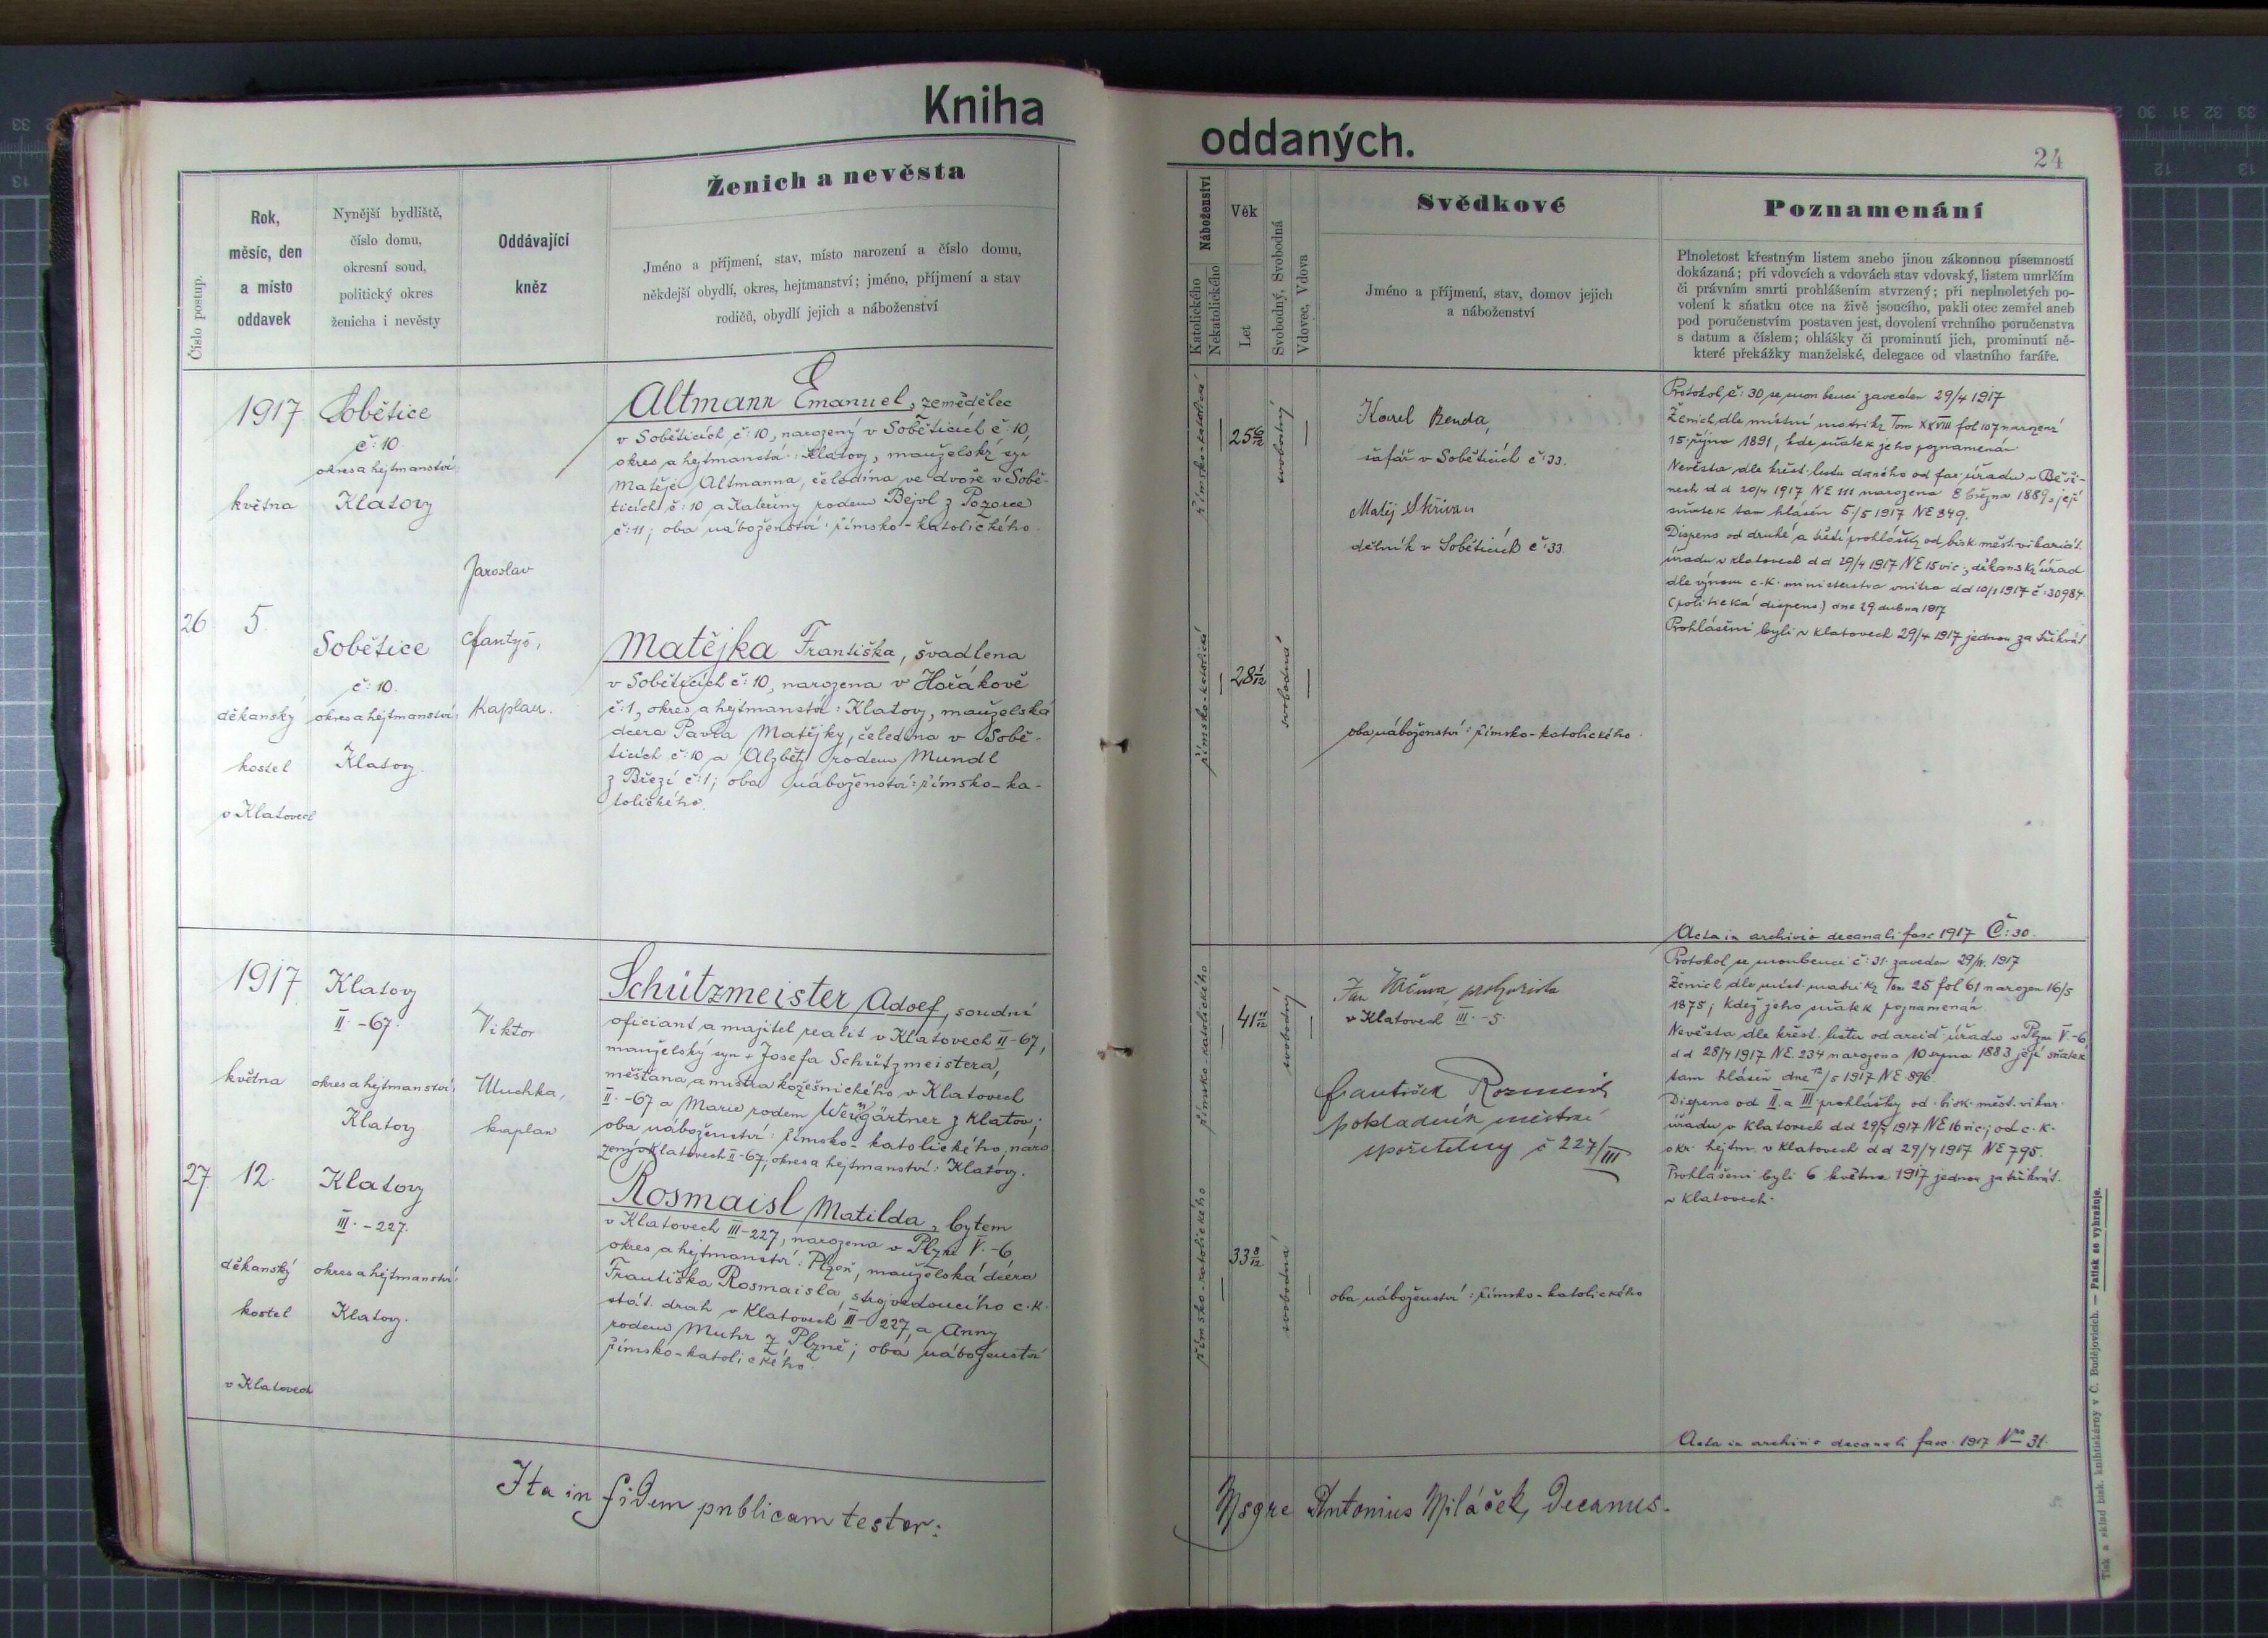 Kniha
oddaných.
24
Číslo postup.
Rok,
měsíc, den
a místo
oddavek
Nynější bydliště,
číslo domu,
okresní soud,
politický okres
ženicha i nevěsty
Oddávající
kněz
Ženich a nevěsta
Jméno a příjmení, stav, místo narození a číslo domu,
někdejší obydlí, okres, hejtmanství; jméno, příjmení a stav
rodičů, obydlí jejich a náboženství
Náboženství
Katolického
Nekatolického
Věk
Let
Svobodný, Svobodná
Vdovec, Vdova
Svědkové
Jméno a příjmení, stav, domov jejich
a náboženství
Poznamenání
Plnoletost křestným listem anebo jinou zákonnou písemností
dokázaná; při vdovcích a vdovách stav vdovský, listem umrlčím
či právním smrti prohlášením stvrzený; při neplnoletých po-
volení k sňatku otce na živě jsoucího, pakli otec zemřel aneb
pod poručenstvím postaven jest, dovolení vrchního poručenstva
s datum a číslem; ohlášky či prominutí jich, prominutí ně-
které překážky manželské, delegace od vlastního faráře.
26
1917
května
5.
děkanský
kostel
v Klatovech
Sobětice
č: 10
okres a hejtmanství
Klatovy
Sobětice
č: 10.
okres a hejtmanství:
Klatovy.
Jaroslav
Kaplan.
Altmann Emanuel, zemědělec
v Soběticích č: 10, narozený v Soběticích č: 10,
okres a hejtmanství: Klatovy, manželský syn
Matěje Altmanna, čeledína ve dvoře v Sobě-
ticích č: 10 a Kateřiny rodem Bejvl z Pozorce
č: 11; oba náboženství římsko-katolického.
Matějka Františka, švadlena
v Soběticích č: 10, narozena v Hořákově
č: 1, okres a hejtmanství: Klatovy, manželská
dcera Pavla Matějky, čeledína v Sobě-
ticích č: 10 a Alžběty rodem Mundl
z Březí č: 1; oba náboženství: římsko-ka-
tolického.
římsko-katolická
25 6/12
svobodný
římsko-katolická
28 1/12
svobodná
Karel Benda,
šafář v Soběticích č: 33.
Matěj Skřivan
dělník v Soběticích č: 33.
oba náboženství: římsko-katolického.
Protokol č: 30 se snoubenci zaveden 29/4 1917
Ženich dle místní matriky Tom XXVIII fol 107 narozený
15. října 1891, kde sňatek jeho poznamenán
Nevěsta dle křest. listu daného od far. úřadu v Běši-
nech dd 20/4 1917 NE 111 narozena 8 března 1889, její
sňatek tam hlášen 5/5 1917 NE 349.
Dispens od druhé a třetí prohlášky od bisk. měst. vikariát.
úřadu v Klatovech dd 29/4 1917 NE 15 vic; děkanský úřad
dle výnosu c.k. ministerstva vnitra dd 10/1 1917 č: 30984.
(politická dispens) dne 29 dubna 1917
Prohlášeni byli v Klatovech 29/4 1917 jednou za třikrát
Acta in archivio decanali fasc 1917 Č: 30.
27
1917
května
12.
děkanský
kostel
v Klatovech
Klatovy
II. -67.
okres a hejtmanství:
Klatovy
Klatovy
III. -227.
okres a hejtmanství:
Klatovy.
Viktor
Uluchka,
kaplan
Schützmeister Adolf, soudní
oficiant a majitel realit v Klatovech II-67,
manželský syn + Josefa Schützmeistera,
měšťana a mistra kožešnického v Klatovech
II. -67 a Marie rodem Weingärtner z Klatov;
oba náboženství: římsko-katolického, naro
zený v Klatovech II-67; okres a hejtmanství: Klatovy.
Rosmaisl Matilda, bytem
v Klatovech III-227, narozena v Plzni V. -6,
okres a hejtmanství: Plzeň, manželská dcera
Františka Rosmaisla, strojvedoucího c.k.
stát. drah v Klatovech III-227, a Anny
rodem Muhr z Plzně; oba náboženství
římsko-katolického.
římsko-katolického
41 11/12
svobodný
římsko-katolického
33 8/12
svobodná
Jan prokurista
v Klatovech III. -5.
František
pokladník městské
spořitelny č 227/III
oba náboženství: římsko-katolického
Protokol se snoubenci č: 31. zaveden 29/IV. 1917
Ženich dle míst. matriky Tom 25 fol 61 narozen 16/5
1875; kdež jeho sňatek poznamenán.
Nevěsta dle křest. listu od arcid. úřadu v Plzni V.-6
dd 28/4 1917 NE. 234 narozena 10 srpna 1883 její sňatek
tam hlášen dne 12/5 1917 NE 396.
Dispens od II. a III. prohlášky od bisk. měst. vikar.
úřadu v Klatovech dd 29/4 1917 NE 16 vic; od c.k.
okr. hejtm. v Klatovech dd 29/4 1917 NE 795.
Prohlášeni byli 6 května 1917 jednou za třikrát.
v Klatovech.
Acta in archivio decanali fasc. 1917 Nro 31.
Ita in fidem publicam testor:
Msgre Antonius Miláček, Decanus.
Tisk a sklad bisk. knihtiskárny v Č. Budějovicích. — Patisk se vyhražuje.